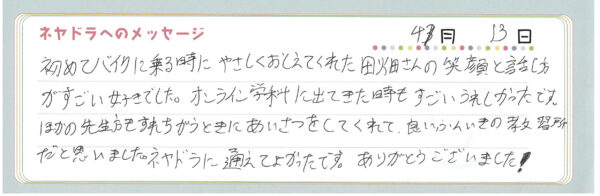 ネヤドラへのメッセージ 4月 13日
初めてバイクに乗る時に やさしくおしえてくれた 田畑さんの 笑顔と話し方
がすごい好きでした。オンライン学科に出てきた時も すごいうれしかったです。
ほかの先生方もすれちがうときに あいさつをしてくれて、良いふんいきの教習所
だと思いました。ネヤドラに通えてよかったです。ありがとうございました!